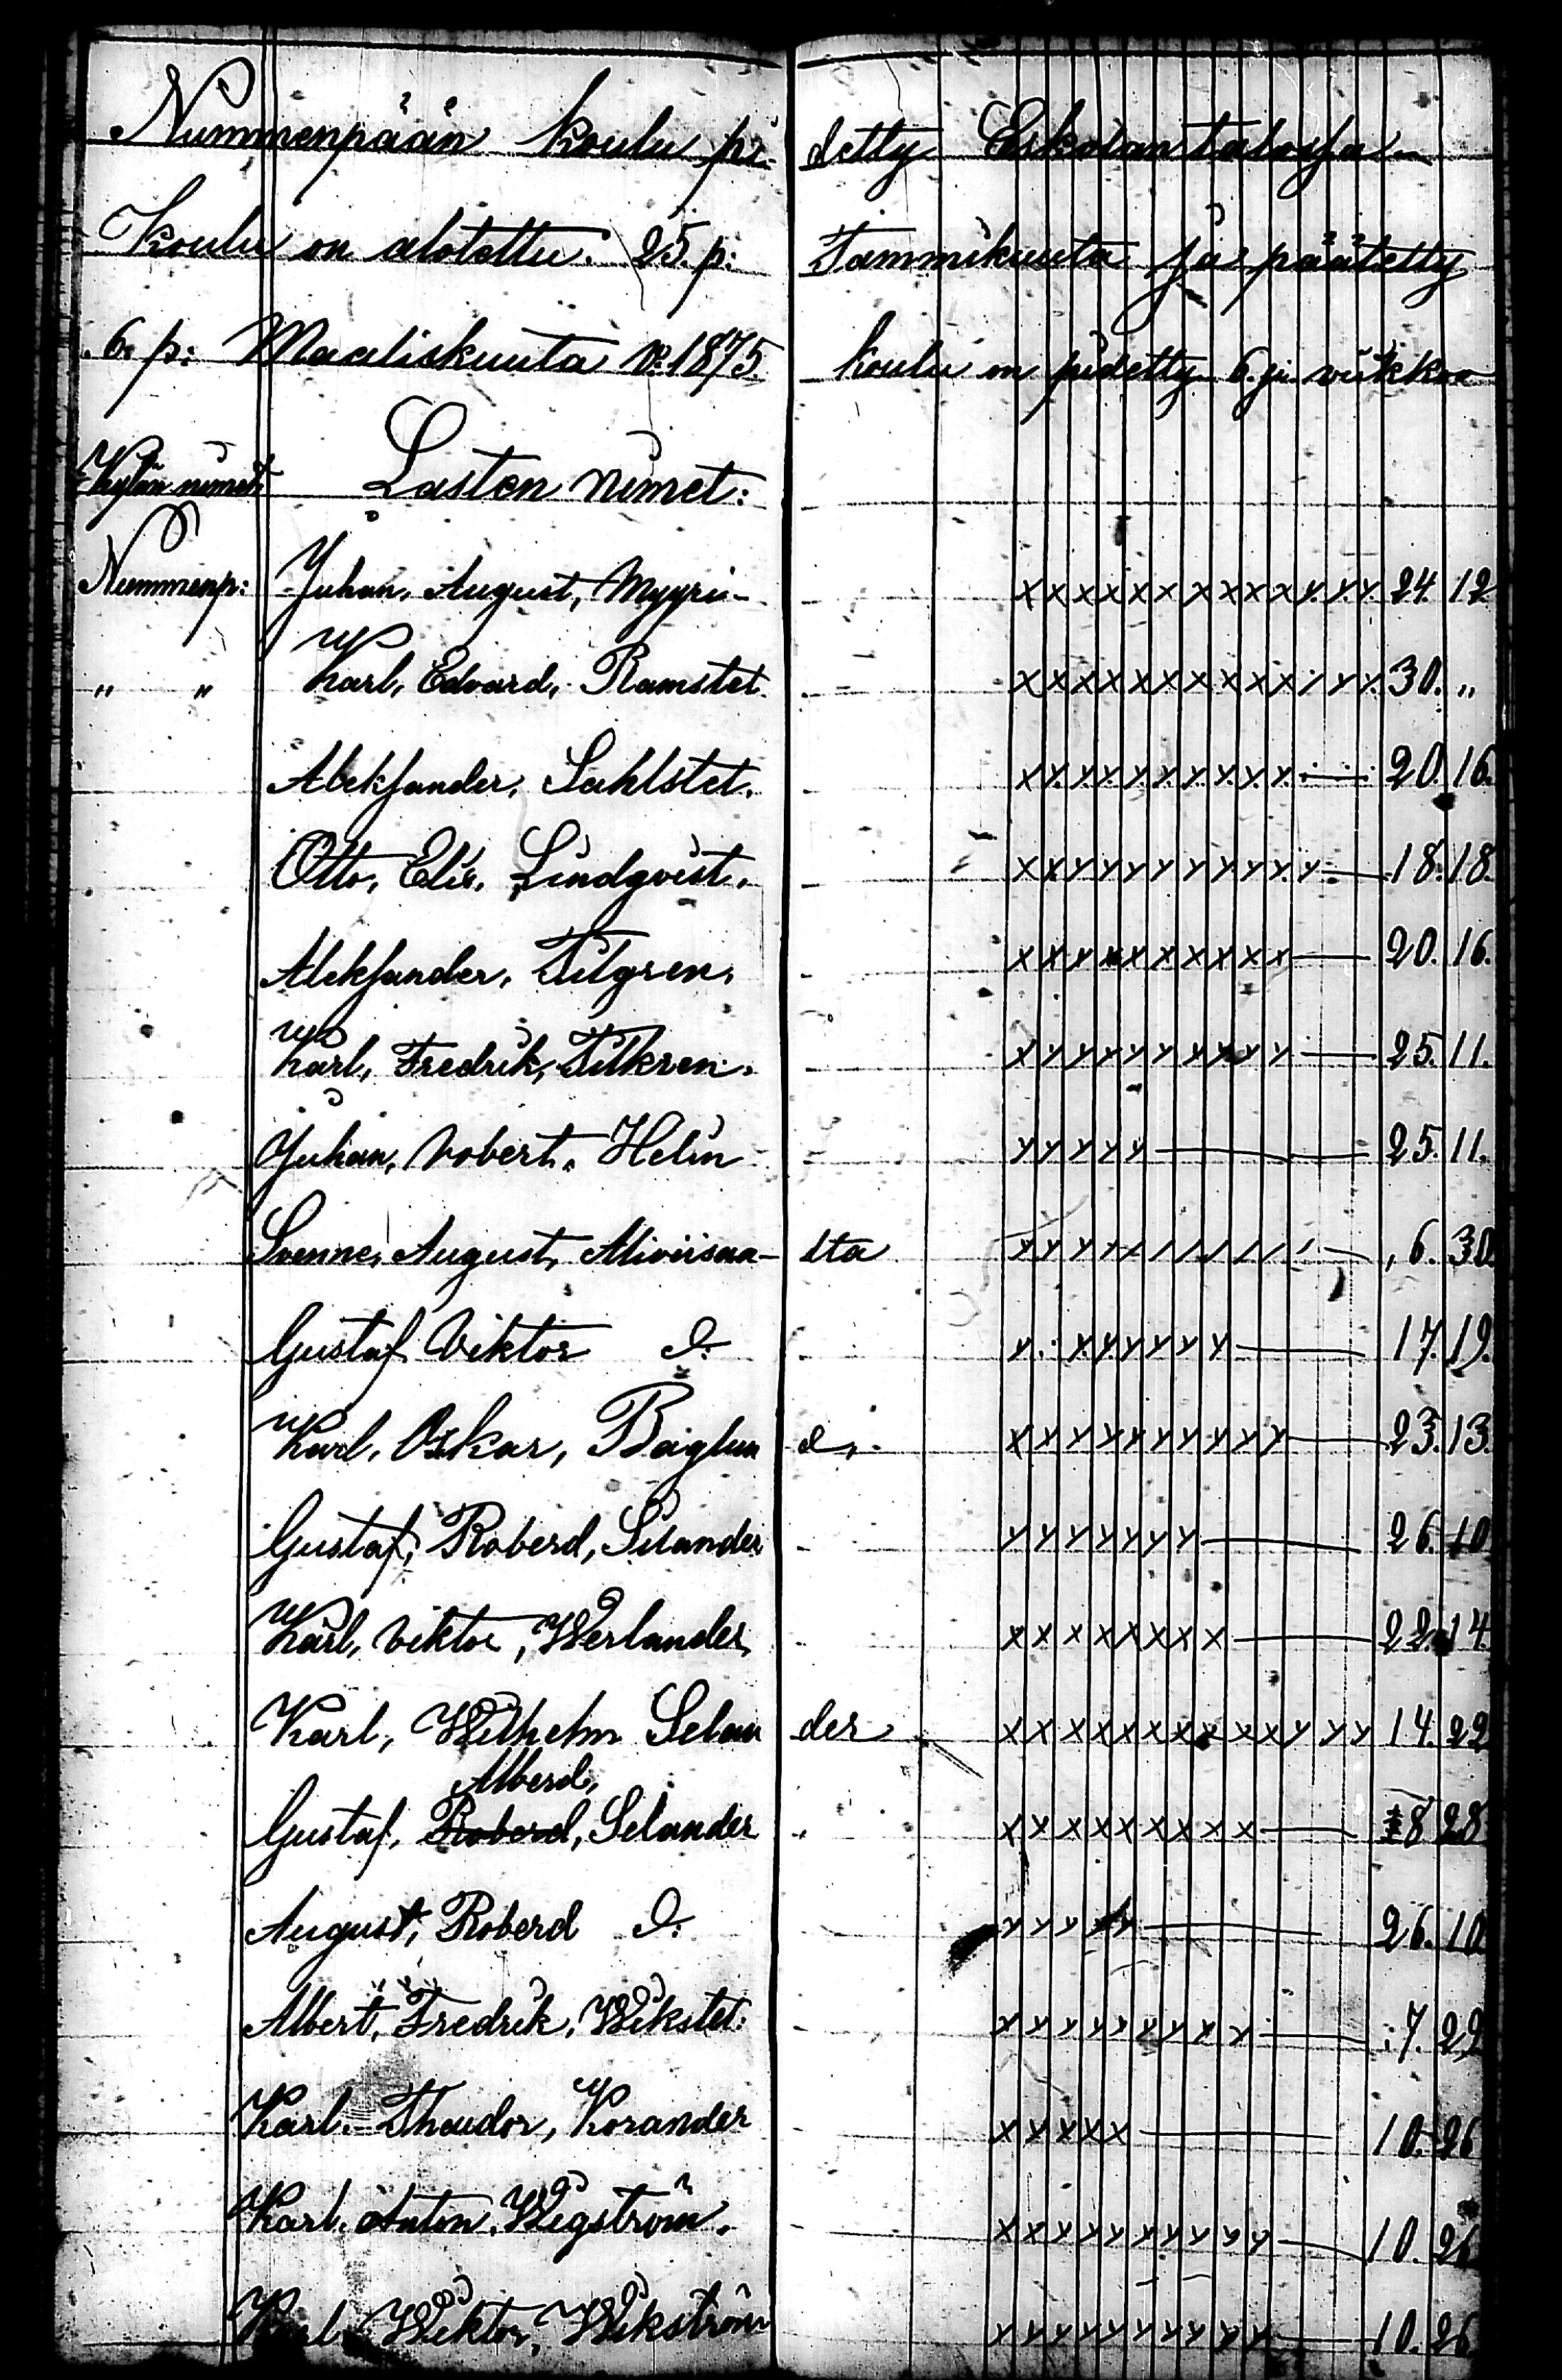 Nummenpään koulu pi- detty Eskolan talossa
Koulu on alotettu. 25. p: Tammikuuta ja päätetty
6. p: Maaliskuuta v. 1875. koulu on pidetty 6. si viikkoa
Kylän nimet: Lasten nimet:
Nummenp: Juhan, August, Myyri- x x x x x x x x x x y y y 24. 12
" " Karl, Edvard, Ramstet. x x x x x x x x x x / y y 30. "
Aleksander, Sahlstet. x y x y x y x y x y 20. 16.
Otto, Elis, Lindqvist. x x y y y y y y y y y 18. 18.
Aleksander, Tilgren. x x y x x x x x x x 20. 16.
Karl, Fredrik, Tilkren. x y y y y y y y y y 25. 11.
Juhan, Robert, Helin y y y y y 25. 11.
Svenne, August, Aliviisaa- lta y y y y / / / / / / / 6. 30.
Gustaf Viktor D: y . x y y y y y 17. 19.
Karl, Oskar, Bäiglun d, x y y y y y y y y y 23. 13.
Gustaf, Roberd, Silander y y y y y y y 26. 10
Karl, Viktor, Werlander x x x x x x x x 22. 14
Karl, Wilhelm Selan der x x x x x x x x x x y y y 14. 22
Alberd,
Gustaf, Roberd, Selander x x x x x x x x x 8 28
August, Roberd D: y y y y y 26. 10
Albert, Fredrik, Wikstet: x y y y y y y x y 7. 29
Karl. Theudor, Korander x y x x x 10. 26
Karl. Anton. Wigström. x x x y y y y y y y 10. 26
Karl Wiktor, Wikström y y y y y y y y y y 10. 26